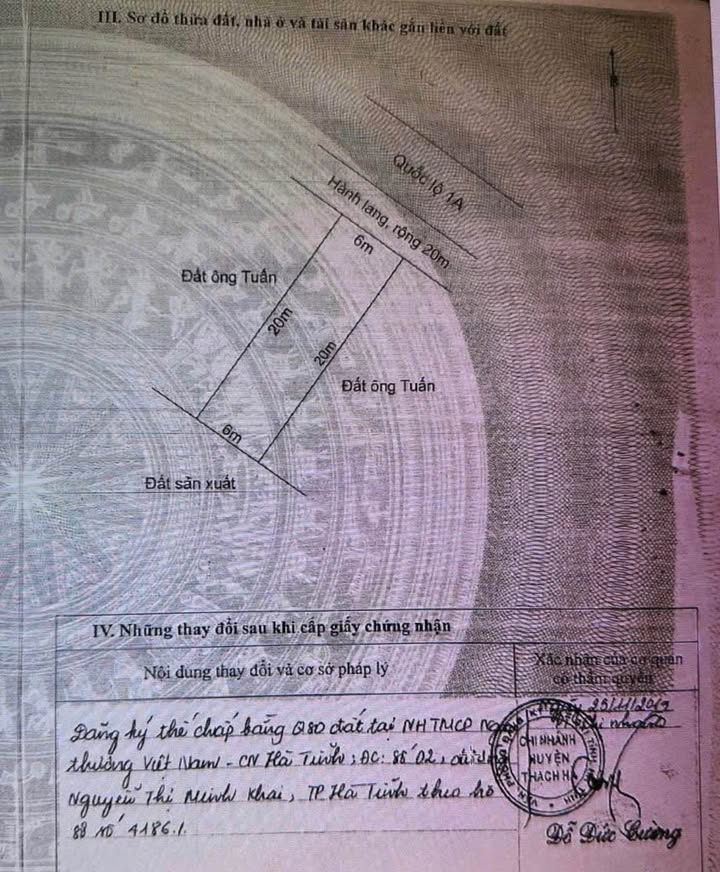 III. Sơ đồ thửa đất, nhà ở và tài sản khác gắn liền với đất
Quốc lộ 1A
Hành lang, rộng 20m
6m
Đất ông Tuấn
20m
20m
Đất ông Tuấn
6m
Đất sản xuất
IV. Những thay đổi sau khi cấp giấy chứng nhận
Nội dung thay đổi và cơ sở pháp lý
Xác nhận của cơ quan
có thẩm quyền
25/11/2019
Đăng ký thế chấp bằng QSD đất tại NHTMCP
thương Việt Nam - CN Hà Tĩnh, ĐC: Số 02, đường
Nguyễn Thị Minh Khai, TP Hà Tĩnh theo hồ
sơ số 4186.1.
CHI NHÁNH
HUYỆN
THẠCH HÀ
Đỗ Đức Cường